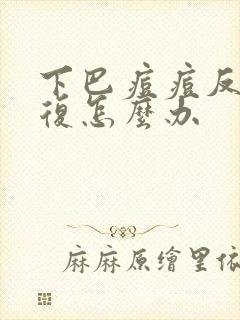 下巴痘痘反
復怎麼办
麻麻原繪里依